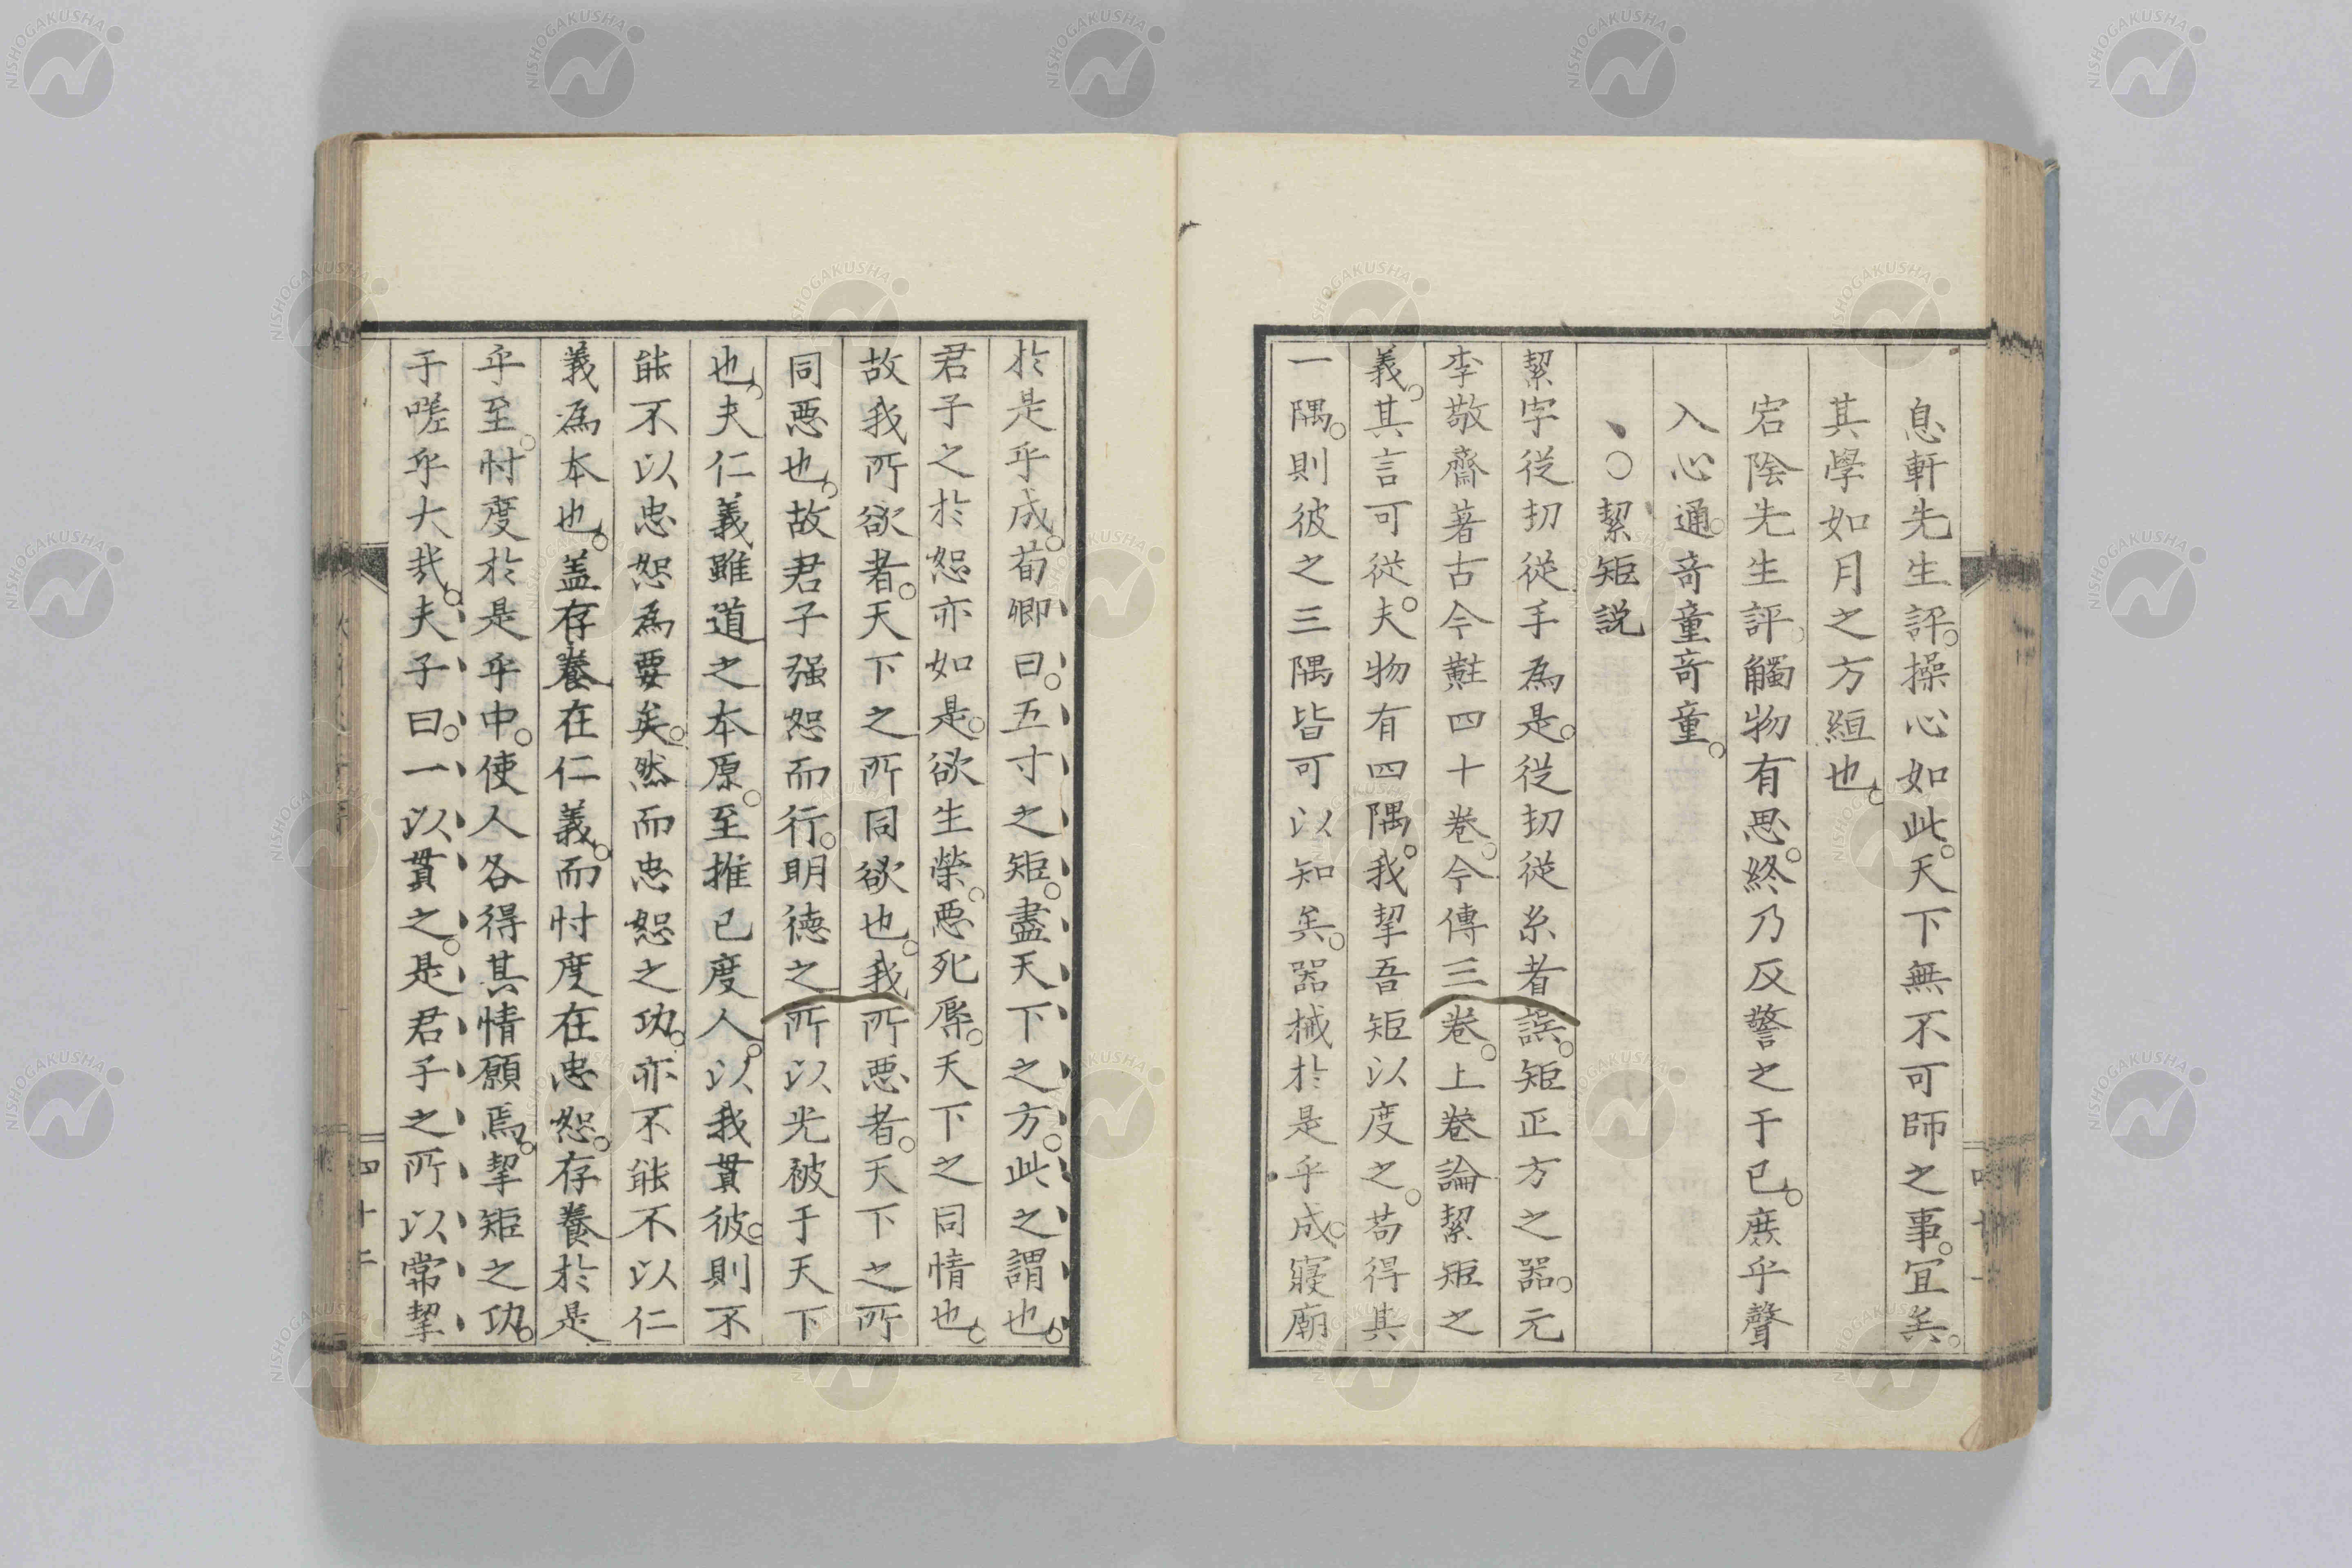 息軒先生評。操心如此。天下無不可師之事。宜矣。
其學如月之方緪也。
宕陰先生評。觸物有思。終乃反警之于已。庶乎聲
入心通。奇童奇童。
、○絜矩説
絜字從㓞從手為是。從㓞從糸者誤。矩正方之器。元
李敬齋著古今黈四十卷。今傳三卷。上卷論絜矩之
義。其言可從。夫物有四隅。我挈吾矩以度之。苟得其
一隅。則彼之三隅皆可以知矣。器械於是乎成。寢廟
於是乎成。荀卿曰。五寸之矩。盡天下之方。此之謂也。
君子之於恕亦如是。欲生榮。惡死辱。天下之同情也。
故我所欲者。天下之所同欲也。我所惡者。天下之所
同惡也。故君子强恕而行。明德之所以光被于天下
也。夫仁義雖道之本原。至推已度人。以我貫彼。則不
能不以忠恕為要矣。然而忠恕之功。亦不能不以仁
義為本也。盖存養在仁義。而忖度在忠恕。存養於是
乎至。忖度於是乎中。使人各得其情願焉。挈矩之功。
于嗟乎大哉。夫子曰。一以貫之。是君子之所以常挈
四十二
NISHOGAKUSHA